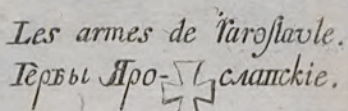 Les armes de Yaroſlavle.
Гербы Яро- славскіе.